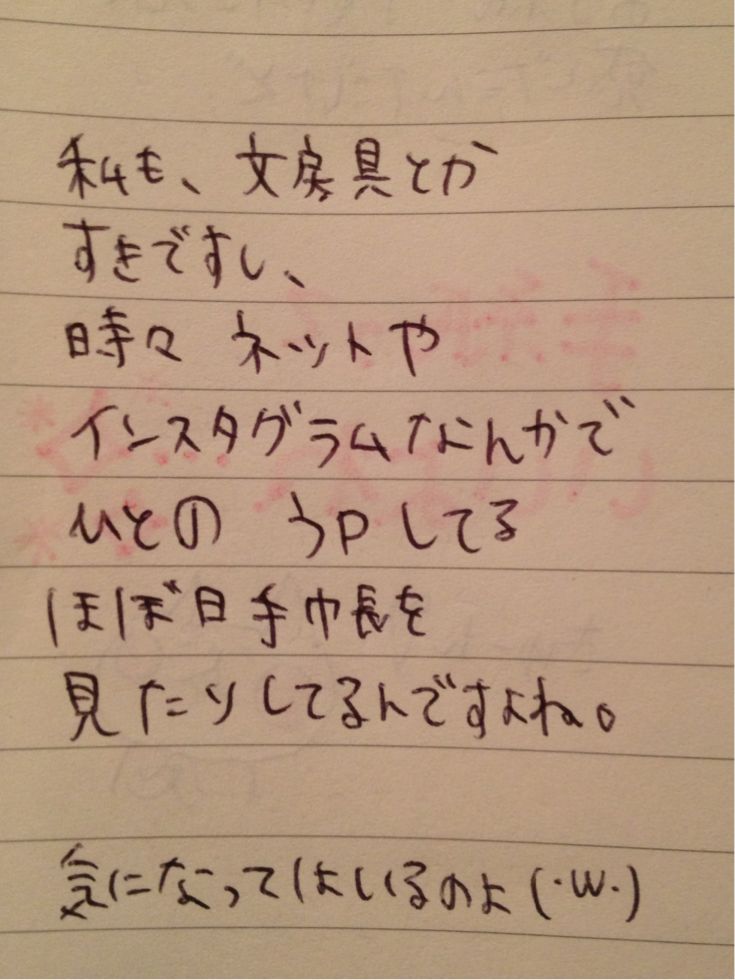 私も、文房具とか
すきですし、
時々 ネットや
インスタグラムなんかで
ひとの うpしてる
ほぼ日手巾長を
見たりしてるんですよね。
気になってはいるのよ(・w・)